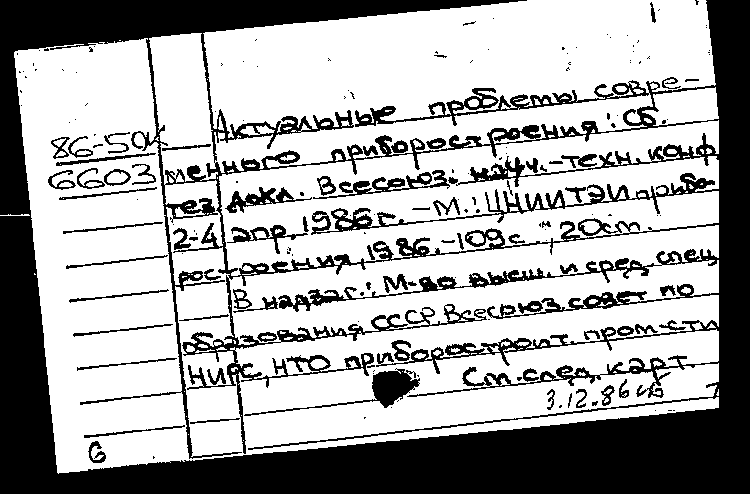 Актуальные проблемы совре-
86-5ОК
менного приборостроения: Сб.
6603
тез. докл. Всесоюз. науч.-техн. конф.
2-4 апр. 1986г. - М.: ЦНИИТЭИ прибо-
ростроения, 1986.-109с., 20см.
В надзаг.: М-во высш. и сред. спец.
образования СССР. Всесоюз. совет по
НИРС, НТО приборостроит. пром-сти
См. след. карт.
3.12.86
6